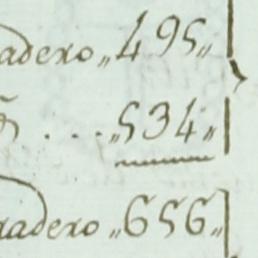 adero „495„
. . . „534„
radero „656„